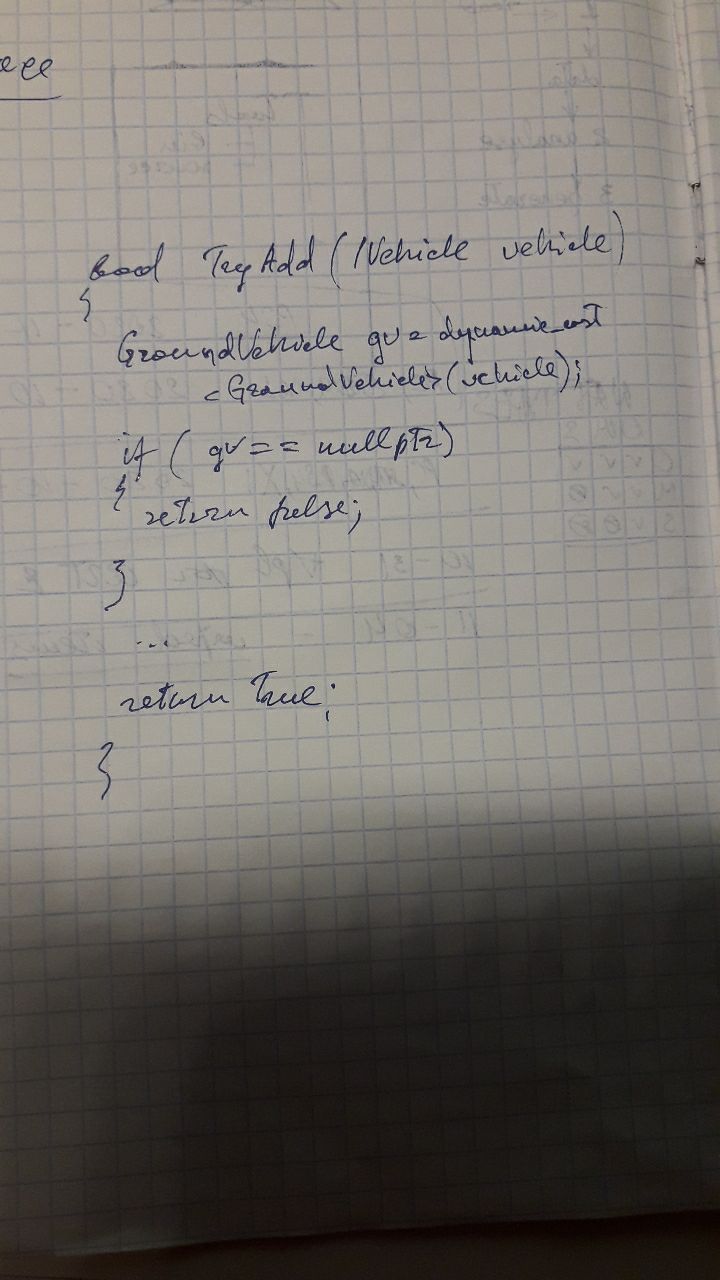 bool TryAdd (IVehicle vehicle)
{
GroundVehicle gv = dynamic_cast
<GroundVehicle>(vehicle);
if ( gv == nullptr)
{
return false;
}
...
return true;
}